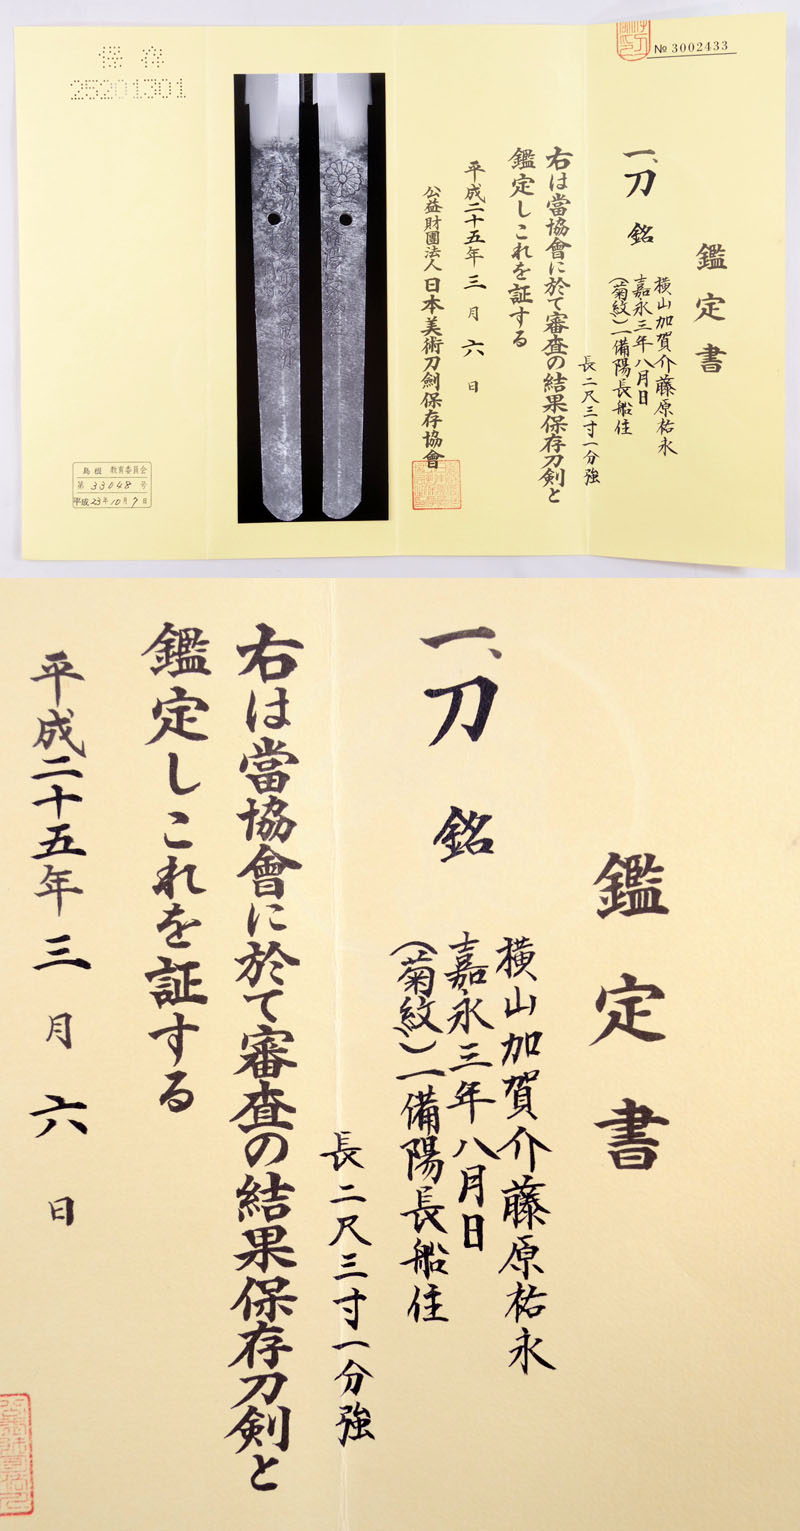 № 3002433
鑑定書
一、刀 銘
横山加賀介藤原祐永
嘉永三年八月日
(菊紋)一備陽長船住
長二尺三寸一分強
右は當協會に於て審査の結果保存刀剣と
鑑定しこれを証する
平成二十五年三月六日
公益財團法人日本美術刀剣保存協會
保存
25201301
島根 教育委員会
第 33048 号
平成23年10月7日
鑑定書
一、刀 銘
横山加賀介藤原祐永
嘉永三年八月日
(菊紋)一備陽長船住
長二尺三寸一分強
右は當協會に於て審査の結果保存刀剣と
鑑定しこれを証する
平成二十五年三月六日